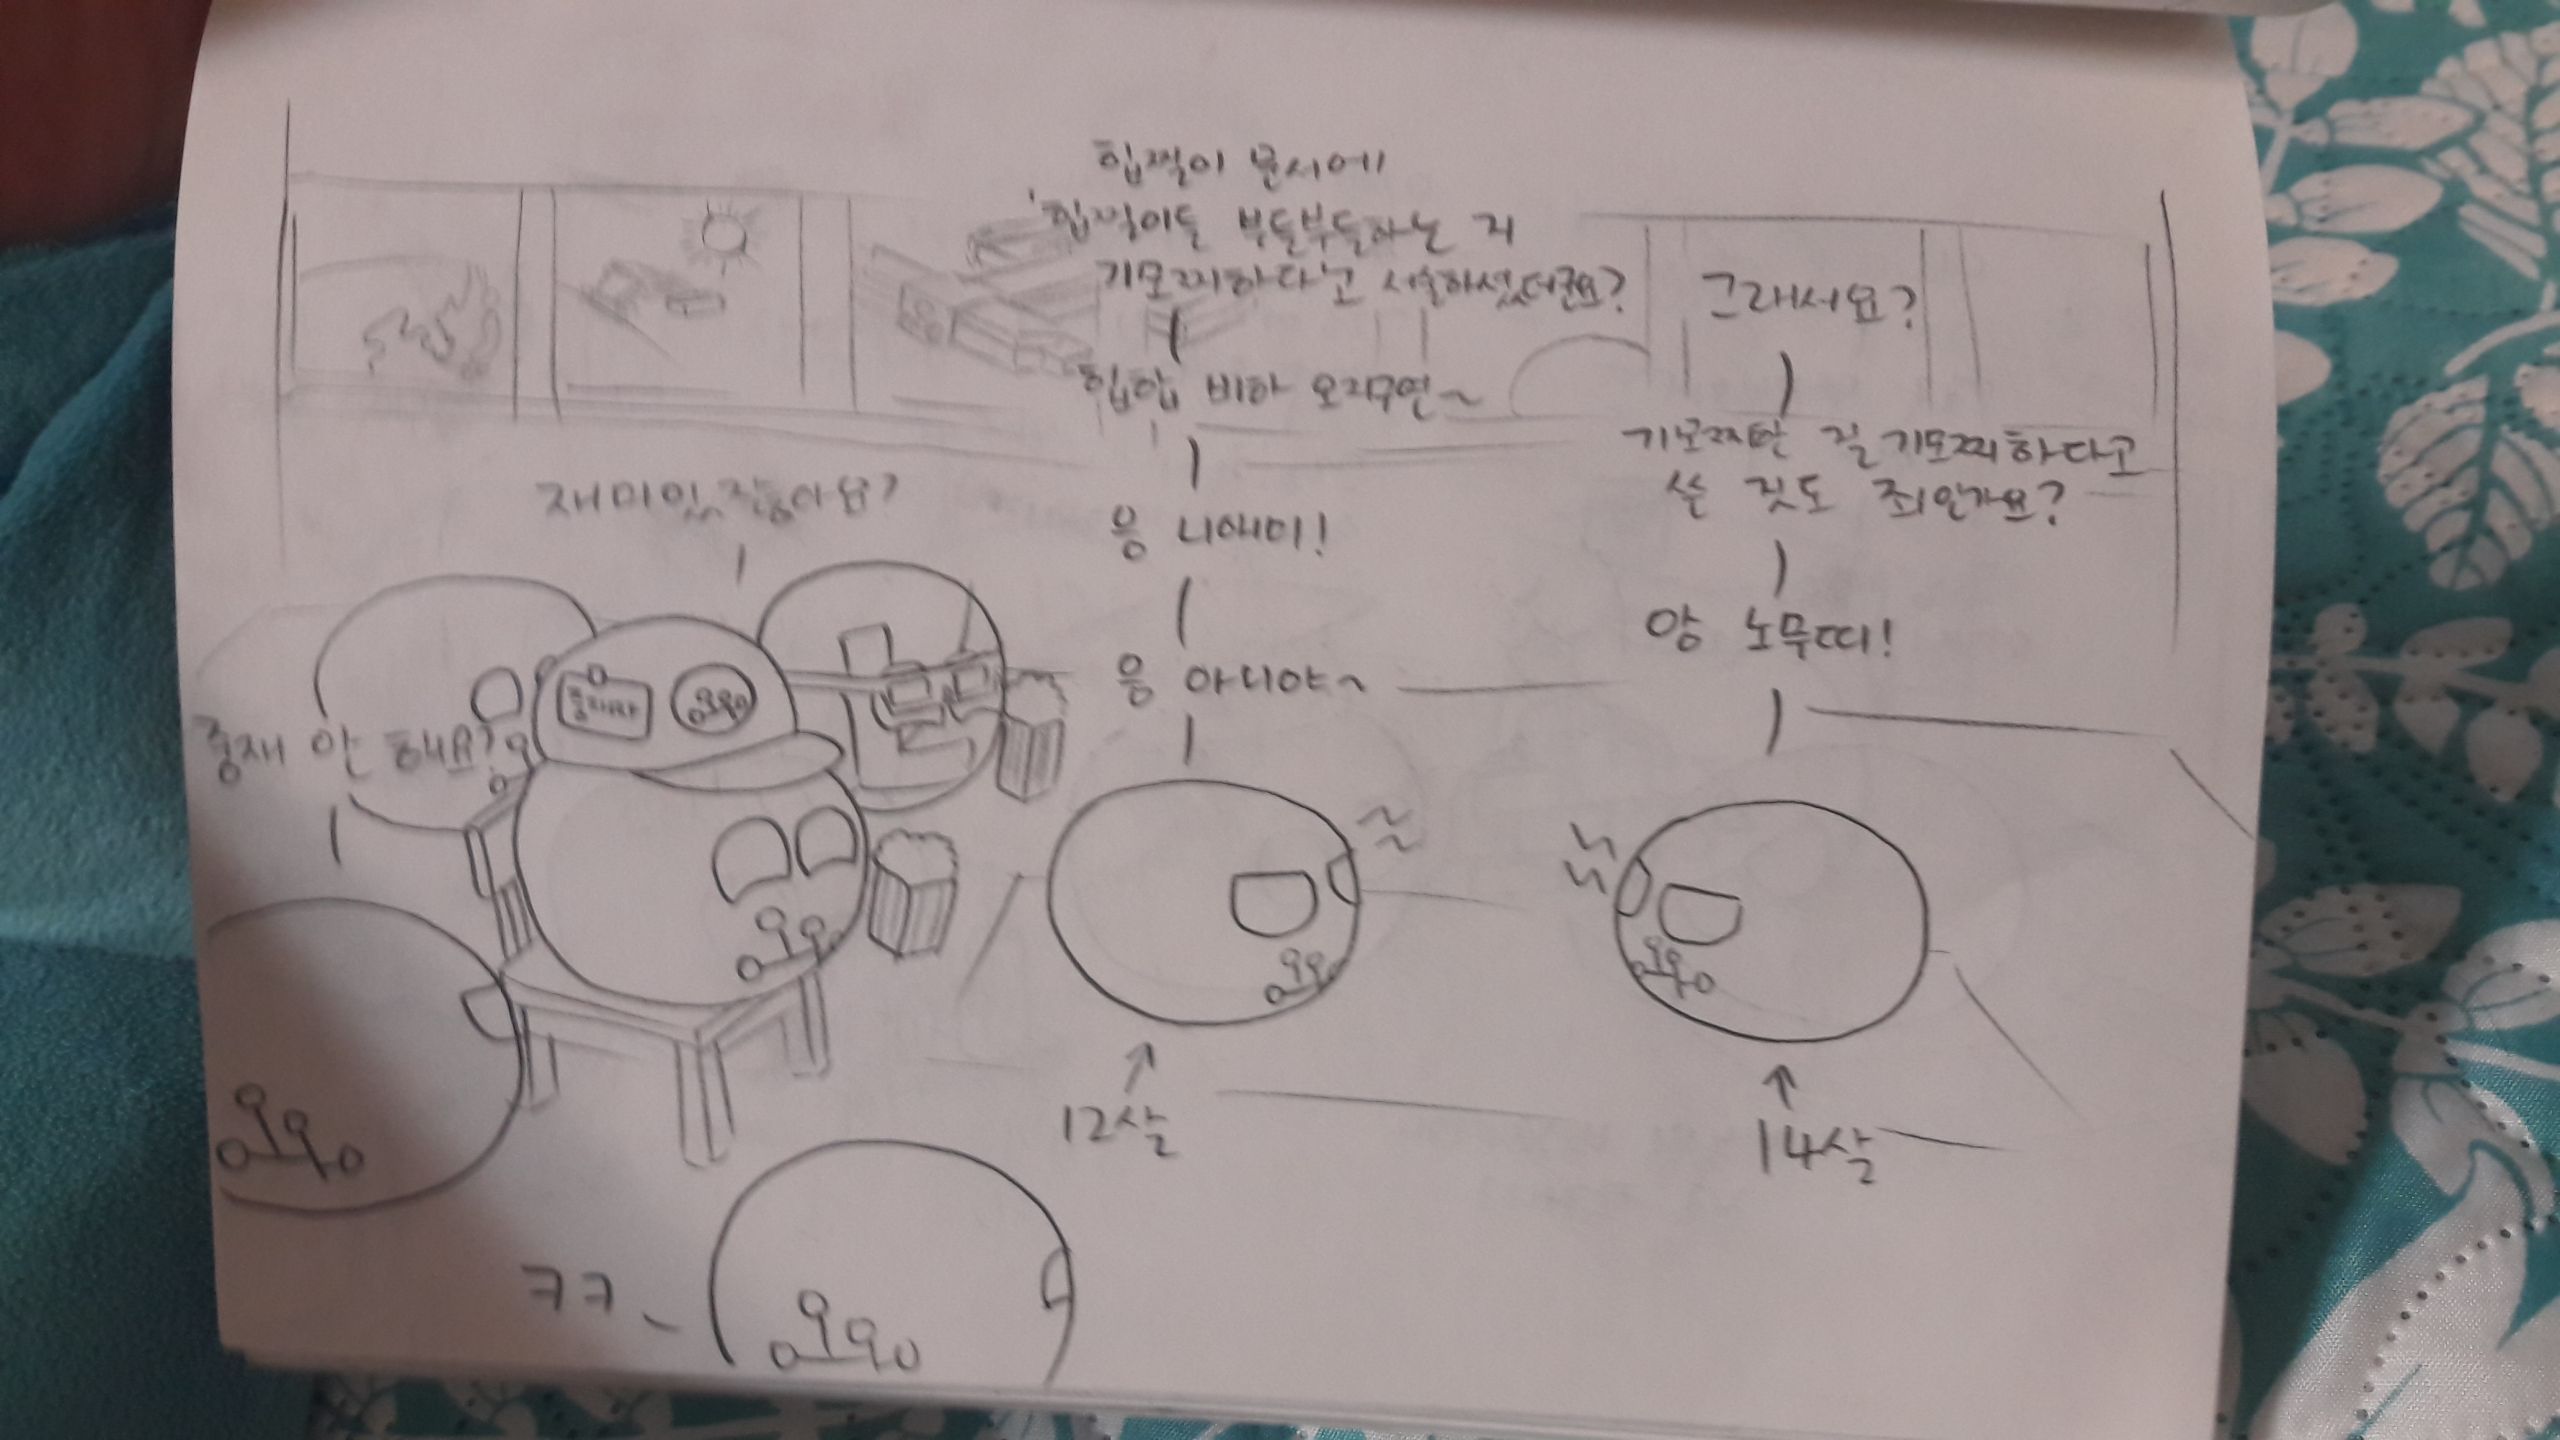 힙찔이 문서에
'힙찔이들 부들부들하는 거
기모찌하다'고 서술하셨더군요?
힙합 비하 오지구연~
응 니애미!
응 아니야~
그래서요?
기모찌한 걸 기모찌하다고
쓴 것도 죄인가요?
앙 노무띠!
재미있잖아요?
중재 안 해요?
중재자
12살
14살
ㅋㅋ